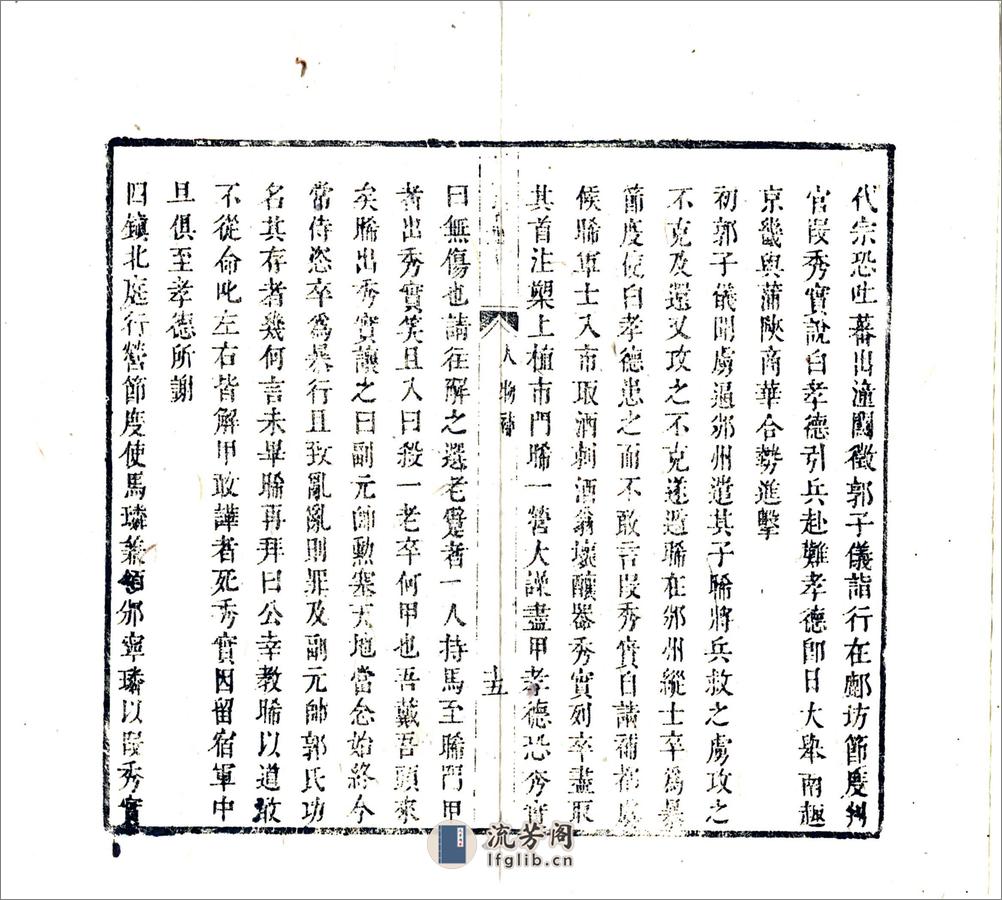 代宗恐吐蕃出潼關徵郭子儀詣行在鄜坊節度判
官段秀實說白孝德引兵赴難孝德即日大舉南趣
京畿與蒲陝商華合勢進擊
初郭子儀聞虜逼邠州遣其子晞將兵救之虜攻之
不克及還又攻之不克遂遁晞在邠州縱士卒為暴
節度使白孝德患之而不敢言段秀實自請補都虞
候晞軍士入市取酒刺酒翁壞釀器秀實列卒盡取
其首注槊上植市門晞一營大譟盡甲孝德恐秀實
人物
十五
曰無傷也請往解之選老躄者一人持馬至晞門甲
者出秀實笑且入曰殺一老卒何甲也吾戴吾頭來
矣晞出秀實讓之曰副元帥勳塞天地當念始終今
常侍恣卒為暴行且致亂亂則罪及副元帥郭氏功
名其存者幾何言未畢晞再拜曰公幸教晞以道敢
不從命叱左右皆解甲敢譁者死秀實因留宿軍中
旦俱至孝德所謝
四鎮北庭行營節度使馬璘兼領邠寧璘以段秀實
流芳阁
lfglib.cn